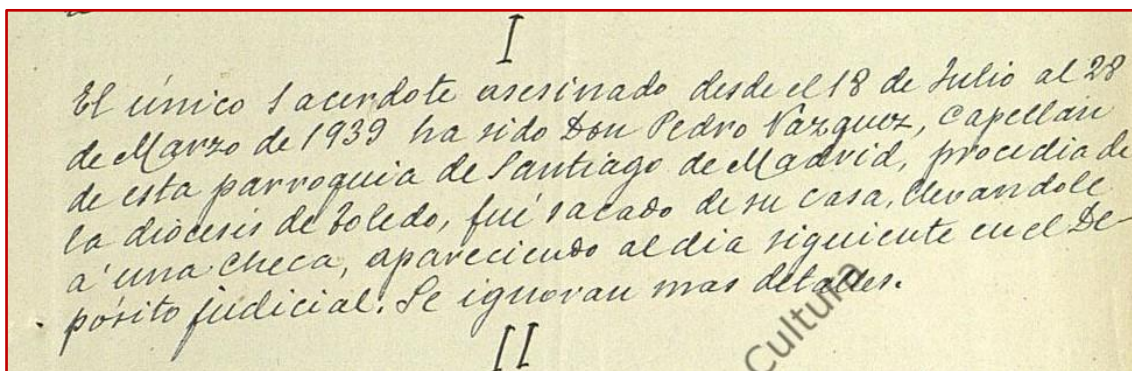 I
El único Sacerdote asesinado desde el 18 de Julio al 28
de Marzo de 1939 ha sido Don Pedro Vazquez, Capellan
de esta parroquia de Santiago de Madrid, procedia de
la diócesis de Toledo, fué sacado de su casa, llevandole
a' una Checa, apareciendo al dia siguiente en el De-
pósito judicial. Se ignoran mas detalles.
II
Cultura